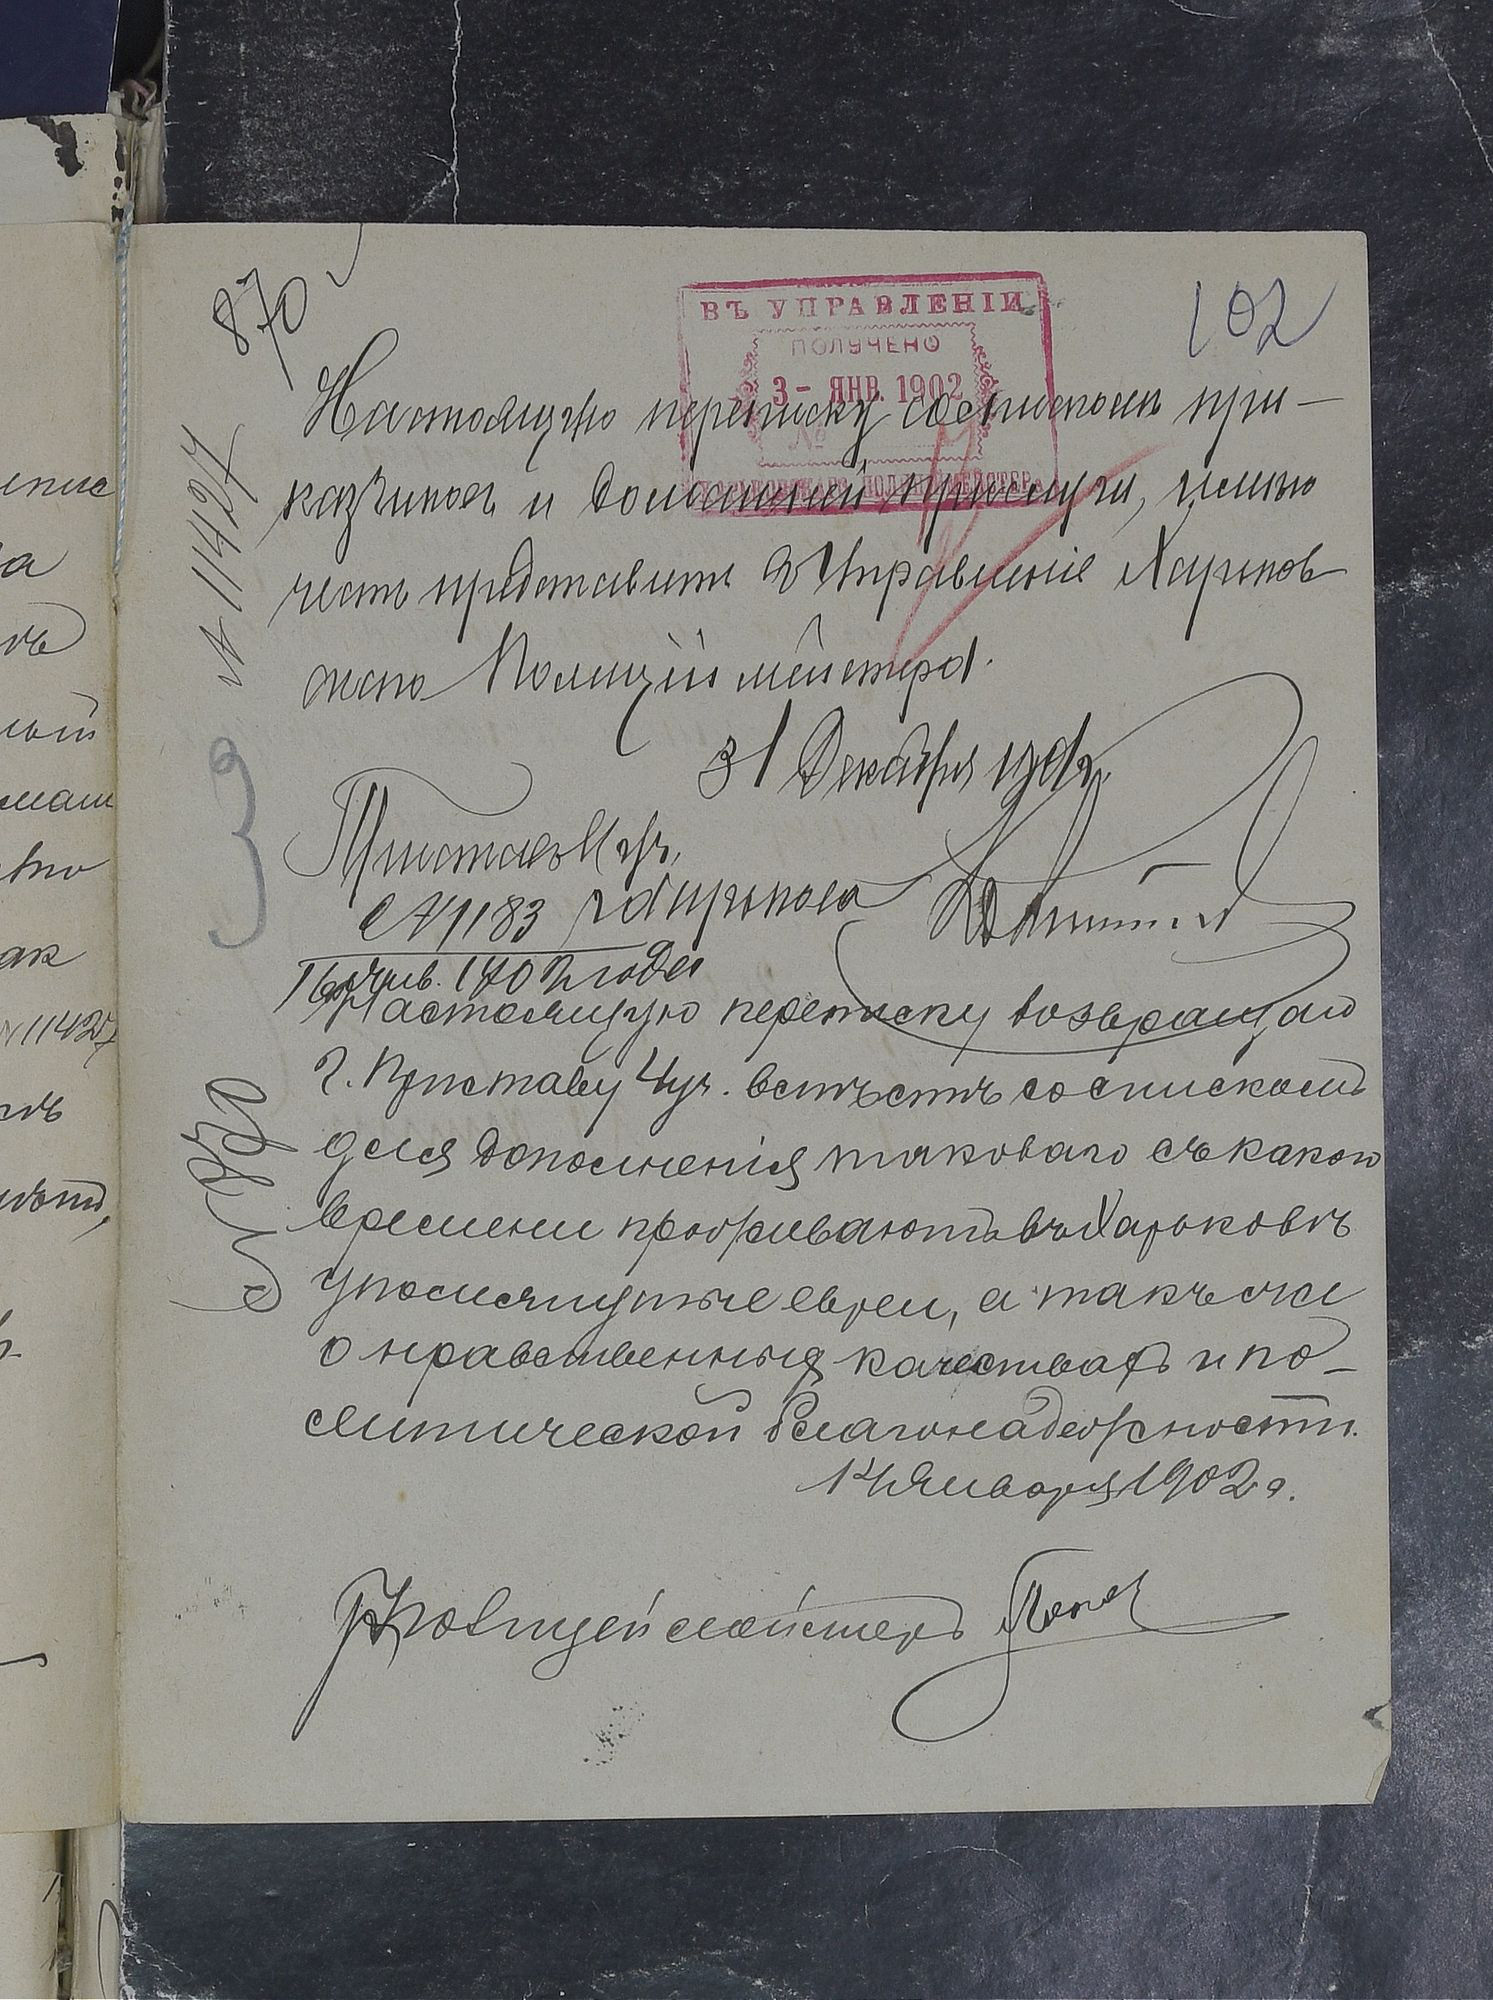 870
102
ВЪ УПРАВЛЕНІИ
ПОЛУЧЕНО
3- ЯНВ. 1902
№
ХАРЬКОВСКАГО ПОЛИЦІЙМЕЙСТЕРА
№ 11427
Настоящую переписку со спискомъ при-
казчиковъ и домашней прислуги, имѣю
честь представить въ Управленіе Харьков
скаго Полиціймейстера.
31 Декабря 1901 г.
Приставъ 4 уч.
г Харькова
№ 1183
1902 года
Настоящую переписку возвращаю
г. Приставу 4 уч. вмѣстѣ со спискомъ
для дополненія таковаго съ какого
времени проживаютъ въ Харьковѣ
упомянутые евреи, а такъ же
о нравственныхъ качествахъ и по-
литической благонадежности.
14 Января 1902 г.
Полицеймейстеръ